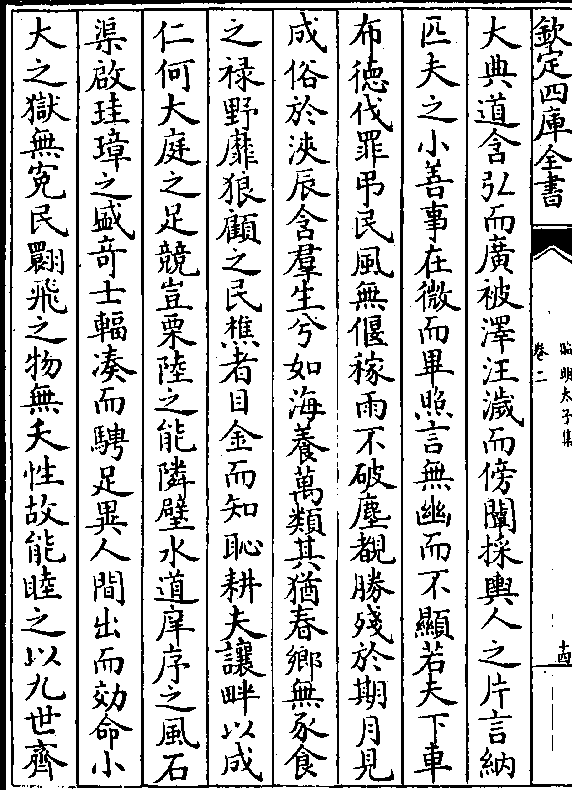 欽定四庫全書
昭明太子集
卷二
十四
大典道含弘而廣被澤汪濊而傍闡採輿人之片言納
匹夫之小善事在微而畢照言無幽而不顯若夫下車
布德伐罪弔民風無偃稼雨不破塵覩勝殘於期月見
成俗於浹辰含羣生兮如海養萬類其猶春鄉無豕食
之禄野靡狼顧之民樵者目金而知恥耕夫讓畔以成
仁何大庭之足競豈栗陸之能隣璧水道庠序之風石
渠啟珪璋之盛奇士輻湊而騁足異人間出而効命小
大之獄無寃民翾飛之物無夭性故能睦之以九世齊